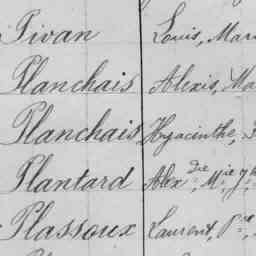 Pivan Louis, Mar
Planchais Alexis, Ma
Planchais Hyacinthe,
Plantard Alex.dre M.ie J.h
Plassoux Laurent, P.re